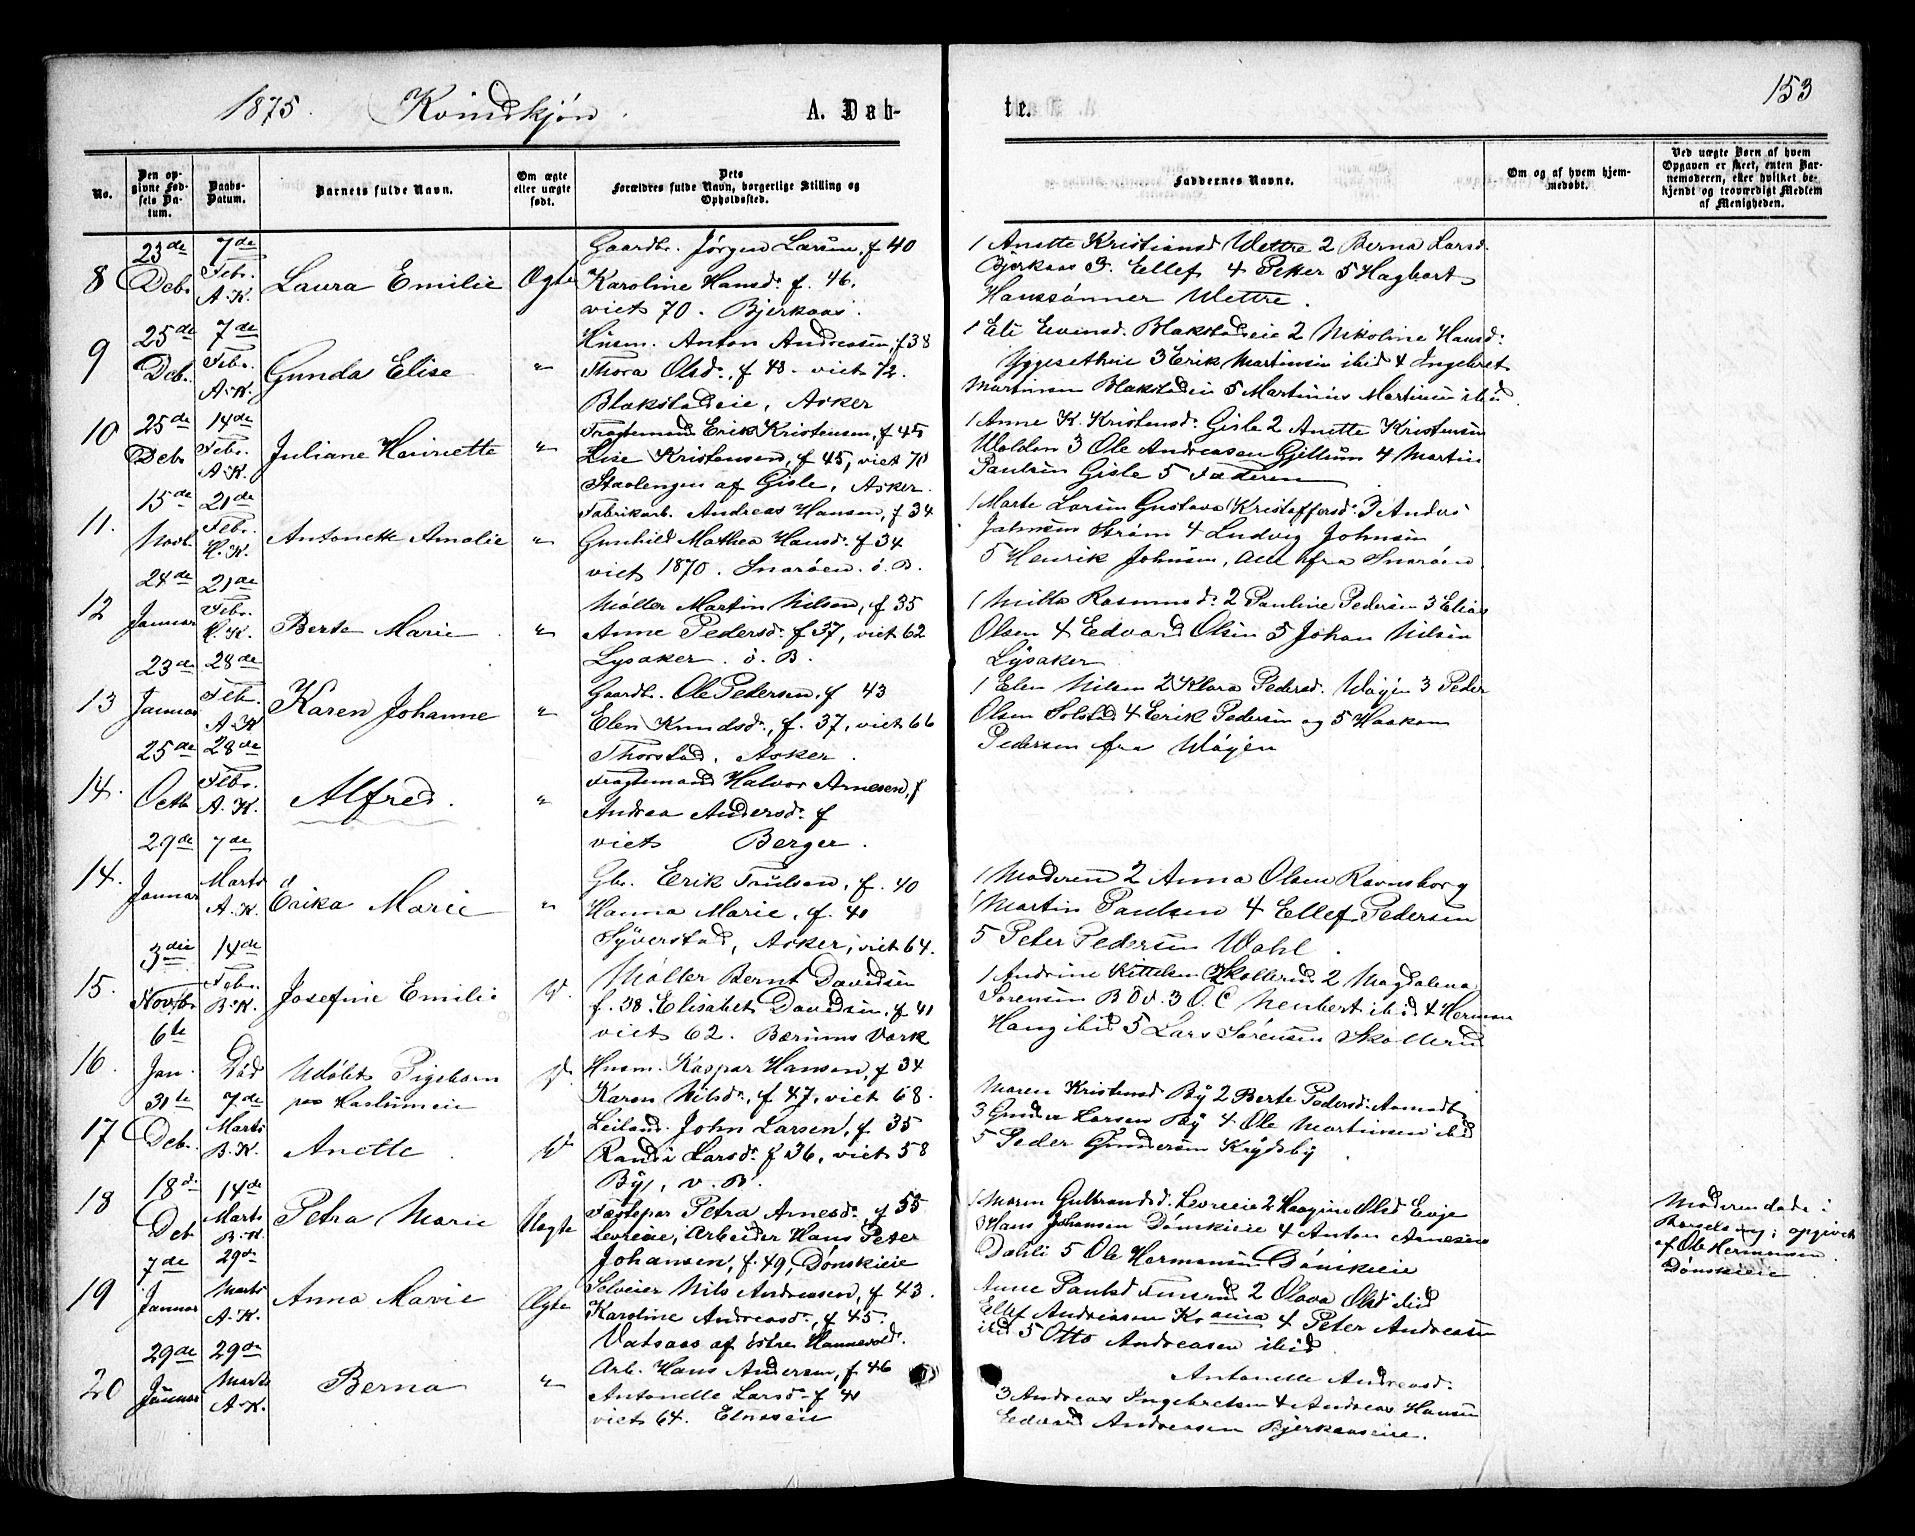 1875. Kvindkjøn. A. Døb-
te. 153
No.
Den op-
givne Fød-
sels Da-
tum.
Daabs-
Datum.
Barnets fulde Navn.
Om ægte
eller uægte
født.
Dets
Forældres fulde Navn, borgerlige Stilling og
Opholdssted.
Faddernes Navne.
Om og af hvem hjem-
medøbt.
Ved uægte Børn af hvem
Opgaven er skeet, enten Bar-
nemoderen, eller hvilket be-
kjendt og troværdigt Medlem
af Menigheden.
8 23de Deb. 7de Febr. A.K. Laura Emilie Ægte
Gaardb. Jørgen Larsen, f 40
Karoline Hansd. f. 46.
viet 70. Bjerkaas.
1 Anette Kristiansd Wettre 2 Berna Larsd.
Bjerkaas 3. Ellef 4 Peter 5 Hagbart
Hanssønner Wettre.
9 25de Deb. 7de Febr. A.K. Gunda Elise "
Husm. Anton Andreasen, f 38
Thora Olsd. f 48. viet 72.
Blakstadeie, Asker
1 Eli Evensd. Blakstadeie 2 Nikoline Hansd.
3 Erik Martinsen ibid 4 Ingebret
Martinsen Blakstadeie 5 Martinius Martinsen ibid.
10 25de Deb. 14de Febr. A.K. Juliane Henriette "
Fragtemand Erik Kristensen, f 45
Lise Kristensen, f 45, viet 70
Staolengen af Gisle, Asker.
1 Anne K. Kristensd. Gisle 2 Anette Kristensen
Wolden 3 Ole Andreasen Gjellum 4 Martin
Paulsen Gisle 5 Faderen
11. 15de Novb. 21de Febr. H.K. Antonette Amalie "
Fabrikarb. Andreas Hansen, f 34
Gunhild Mathea Hansd. f 34
viet 1870. Snarøen. ø. B.
1 Marte Larsen Gustava Kristoffersd. 3 Anders
Johnsen Strøm 4 Ludvig Johnsen
5 Henrik Johnsen, alle fra Snarøen.
12 24de Januar 21de Febr. H.K. Berte Marie "
Møller Martin Nilsen, f 35
Anne Pedersd. f 37, viet 62
Lysaker. ø. B.
1 Milla Rasmusd. 2 Pauline Pedersen 3 Elias
Olsen 4 Edvard Olsen 5 Johan Nilsen
Lysaker
13 23de Januar 28de Feb. A.K. Karen Johanne "
Gaardb. Ole Pedersen, f 43
Elen Knudsd., f. 37, viet 66
Thorstad, Asker.
1 Elen Nilsen 2 Klara Pedersd. Wøyen 3 Peder
Olsen Solstad 4 Erik Pedersen og 5 Haakon
Pedersen fra Wøyen
14. 25de Octb 28de Febr. A.K. Alfred. "
Fragtemand Halvor Arnesen, f
Andrea Andersd. f
viet Berger.
14. 29de Januar 7de Marts A.K. Erika Marie "
Gbr. Erik Paulsen, f. 40
Hanna Marie, f. 41
Syverstad, Asker, viet 64.
1 Moderen 2 Anna Olsen Ravnsborg
Martin Paulsen 4 Ellef Pedersen
5 Peter Pedersen Wahl.
15. 3die Novbr. 14de Febr. B.K. Josefine Emilie V.
Møller Bernt Davidsen
f. 38. Elisabet Davidsen, f 41
viet 62. Bærums Værk
1 Andrine Kittelsen Skollerud 2 Magdalena
Sørensen B. V. 3 O. C Neubert ibid 4 Herman
Haug ibid 5 Lars Sørensen Skollerud
16. 6te Jan. Død Udøbt Pigebarn
paa Haslumeie V.
Husm. Kaspar Hansen, f 34
Karen Nilsd., f 47, viet 68.
17 31te Deb. 7de Marts B.K. Anette. V
Leiland. John Larsen, f 35
Randi Larsd. f 36, viet 58
By, v. B.
Maren Kristensd By 2 Berte Pedersd. Aamodt
3 Gunder Larsen By 4 Ole Martinsen ibid
5 Peder Gundersen Krydsby.
18 18de Deb 14de Marts B.K. Petra Marie Uægte
Petra Arnesd. f 55
Levreeie, Arbeider Hans Peter
Johansen, f. 49, Dønskieie
1 Maren Gulbrandsd. Levreeie 2 Olsd Evje
3 Hans Johansen Dønskieie 4 Anton Arnesen
Dahli 5 Ole Hermansen Dønskieie
Moderen døde i
Barselseng; opgivet
af Ole Hermansen
Dønskieie
19 7de Januar 29de Marts A.K. Anna Marie Ægte
Selveier Nils Andreasen, f 43.
Karoline Andreasd., f 45.
Vatsaas af østre Hannevold.
Anne Paulsd Fusrud 2 Olava Olsd ibid
Ellef Andreasen 4 Peter Andreasen
ibid 5 Otto Andreasen ibid
20 29de Januar 29de Marts A.K. Berna "
Arb. Hans Andersen, f 46
Antonette Larsd. f 41
viet 64. Elnæseie
Antonette Andreasd.
3 Andreas Ingebretsen 4 Andreas Hansen
Edvard Andreasen Bjerkaaseie.